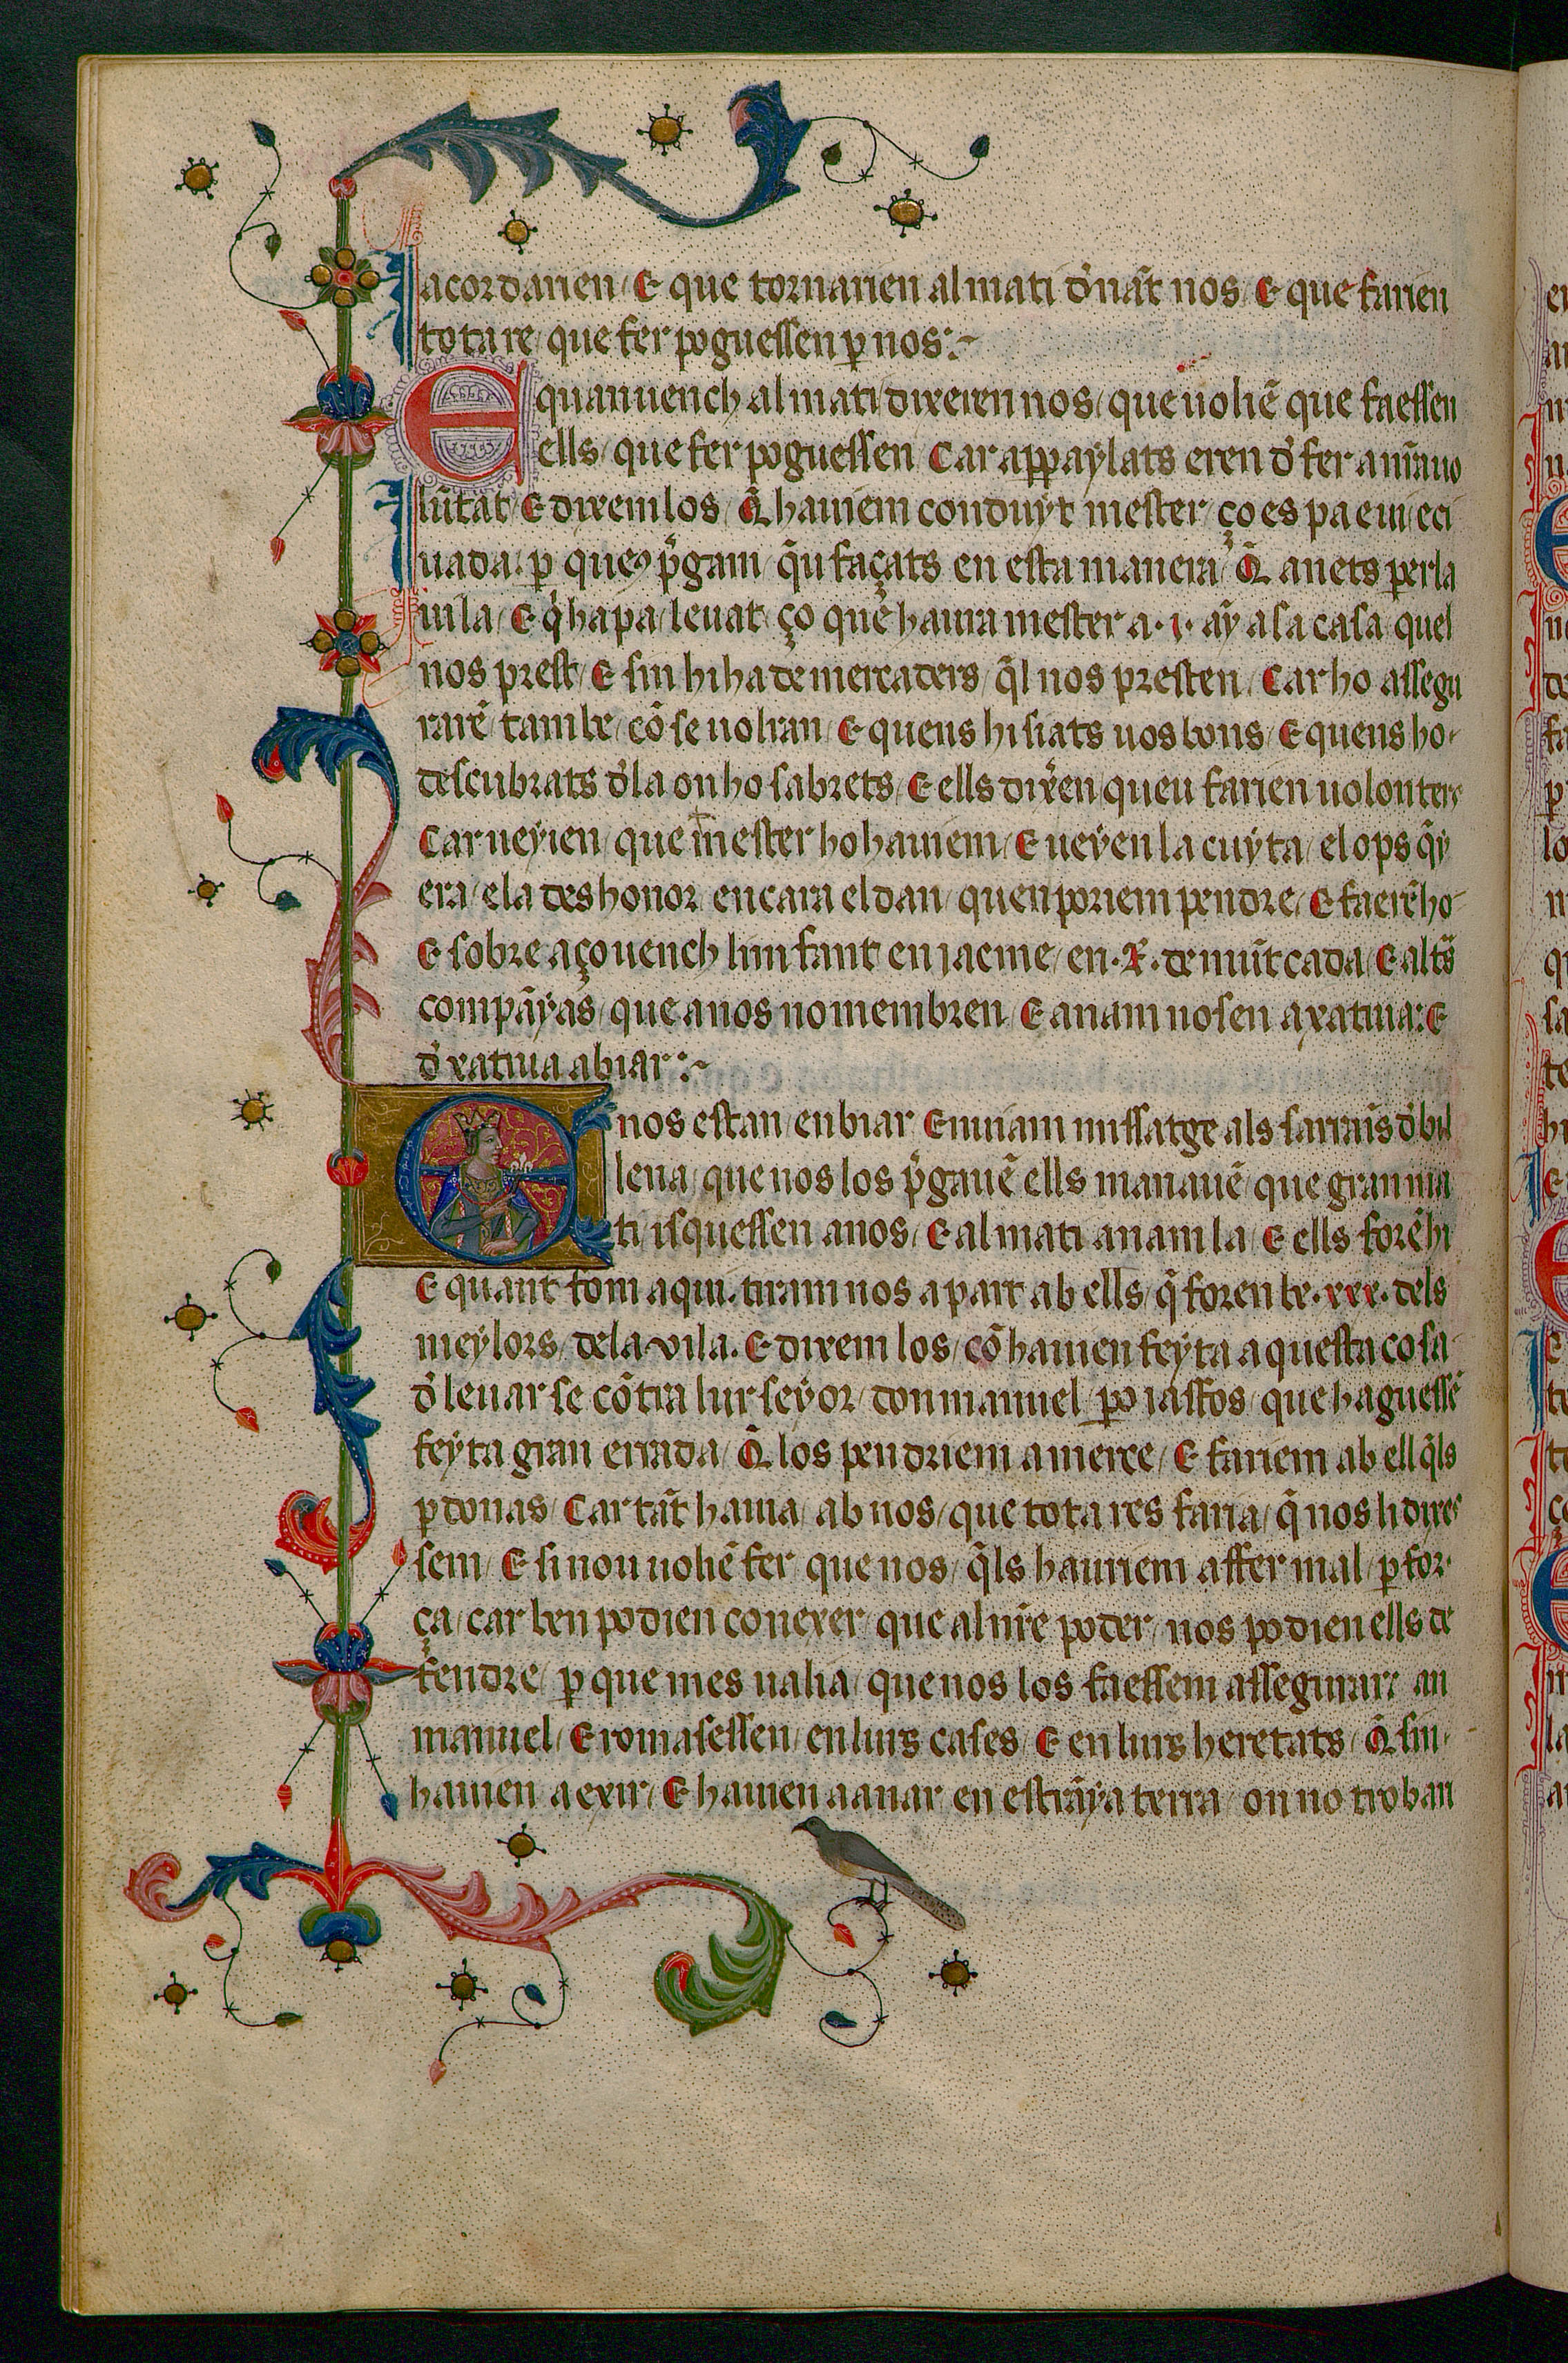 acordarien / E que tornarien al mati d̓nãt nos / E que farien
tota re / que fer poguessen p̱ nos :~
E quan uench al mati / dixeren nos / que uoliē que faessen
ells / que fer poguessen Car app̱aylats eren d̓ fer a nr̄a uo
lūtat / E dixem los / Q̄ hauiem conduyt mester / ço es pa e ui / e ci
uada . p̱ queꝯ p̓gam / q̄u façats en esta manera / Q̄ anets per la
uila / E q̓ ha pa / leuat ço que haura mester a .j. aȳ a sa casa quel
nos prest / E sin hi ha de mercaders / q̄l nos presten / Car ho assegu
rarē tambe / cō se uolran / E quens hi siats uos bons / E quens ho
descubrats d̓la on ho sabrets / E ells dix̓en queu farien uolonters
Car ueyien / que mester ho hauiem / E ueyen la cuyta / el ops q̄y
era / e la deshonor encara el dan / quen poriem pendre / E faerēho
E sobre aço uench linfant en jacme / en .R. de mūtcada / E altr̄s
compāyas / que a nos no membren / E anam nosen a xatiua : E
d̓ xatiua a biar :~
E nos estan en biar Enuiam missatge als sarraīs d̓ bil
lena / que nos los p̓gauē ells manauē / que gran ma
ti isquessen a nos / E al mati anam la / E ells forē hi
E quant fom aqui . tiram nos a part ab ells / q̄ foren be .xxx. dels
meylors / de la vila . E dixem los / cō hauien feyta aquesta cosa
d̓ leuar se cōtra lur seyor / don manuel / p̱o iassfos / que haguessē
feyta gran errada / Q̄ los pendriem a merce / E fariem ab ell q̄ls
p̱donas / Car tāt hauia / ab nos / que tota res faria / q̄ nos li dixes
sem / E si no u uoliē fer que nos / q̄ls hauriem affer mal / p̱ for
ça / car ben podien conexer / que al nr̄e poder / nos podien ells de
fendre / p̱ que mes ualia / que nos los faessem assegurar : an
manuel / E romasessen / en lurs cases / E en lurs heretats / Q̄ sin
hauien a exir / E hauien a anar en estrāya terra / on no troban